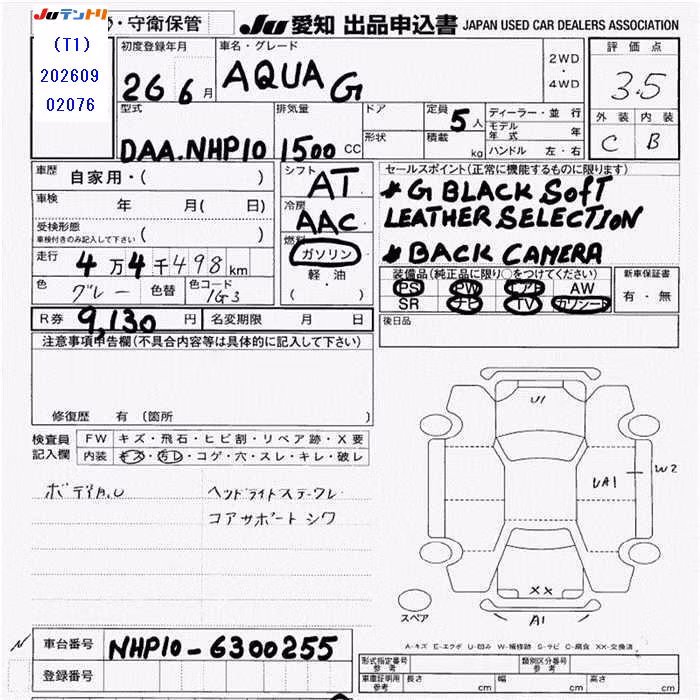 JUテントリ ・守衛保管 JU 愛知 出品申込書 JAPAN USED CAR DEALERS ASSOCIATION
(T1)
202609
02076
初度登録年月
26 6月
車名・グレード
AQUA G
2WD
・
4WD
評価点
3.5
外装 内装
C B
型式
DAA.NHP10
排気量
1500 CC
ドア
形状
定員 5 人
積載 kg
ディーラー・並行
モデル年式 年
ハンドル 左・右
車歴 自家用・( )
車検 年 月( 日)
受検形態
車検付きのみ記入して下さい ( )
走行 4万4千498km
色 グレー 色替 色コード 1G3
シフト AT
冷房 AAC
燃料 ガソリン
軽・油
( ・ )
セールスポイント(正常に機能するものに限ります)
* G BLACK SOFT
LEATHER SELECTION
* BACK CAMERA
装備品(純正品に限り○をつけてください)
PS PW エアB AW
SR ナビ TV カワシート
新車保証書
有・無
R券 9,130 円 名変期限 月 日
後日品
注意事項申告欄(不具合内容等は具体的に記入して下さい)
修復歴 有 〔箇所 〕
検査員
記入欄
FW キズ・飛石・ヒビ割・リペア跡・X要
内装 キズ・汚レ・コゲ・穴・スレ・キレ・破レ
ボディA.U ヘッドライトステークレ
コアサポートシワ
U1
UA1
W2
XX
A1
スペア
A-キズ E-エクボ U-凹み W-補修跡 S-サビ C-腐食 XX-交換済
N 車台番号 NHP10-6300255
登録番号
形式指定番号
参考
類別区分番号
参考
車庫証明用
参考
長さ cm 幅 cm 高さ cm